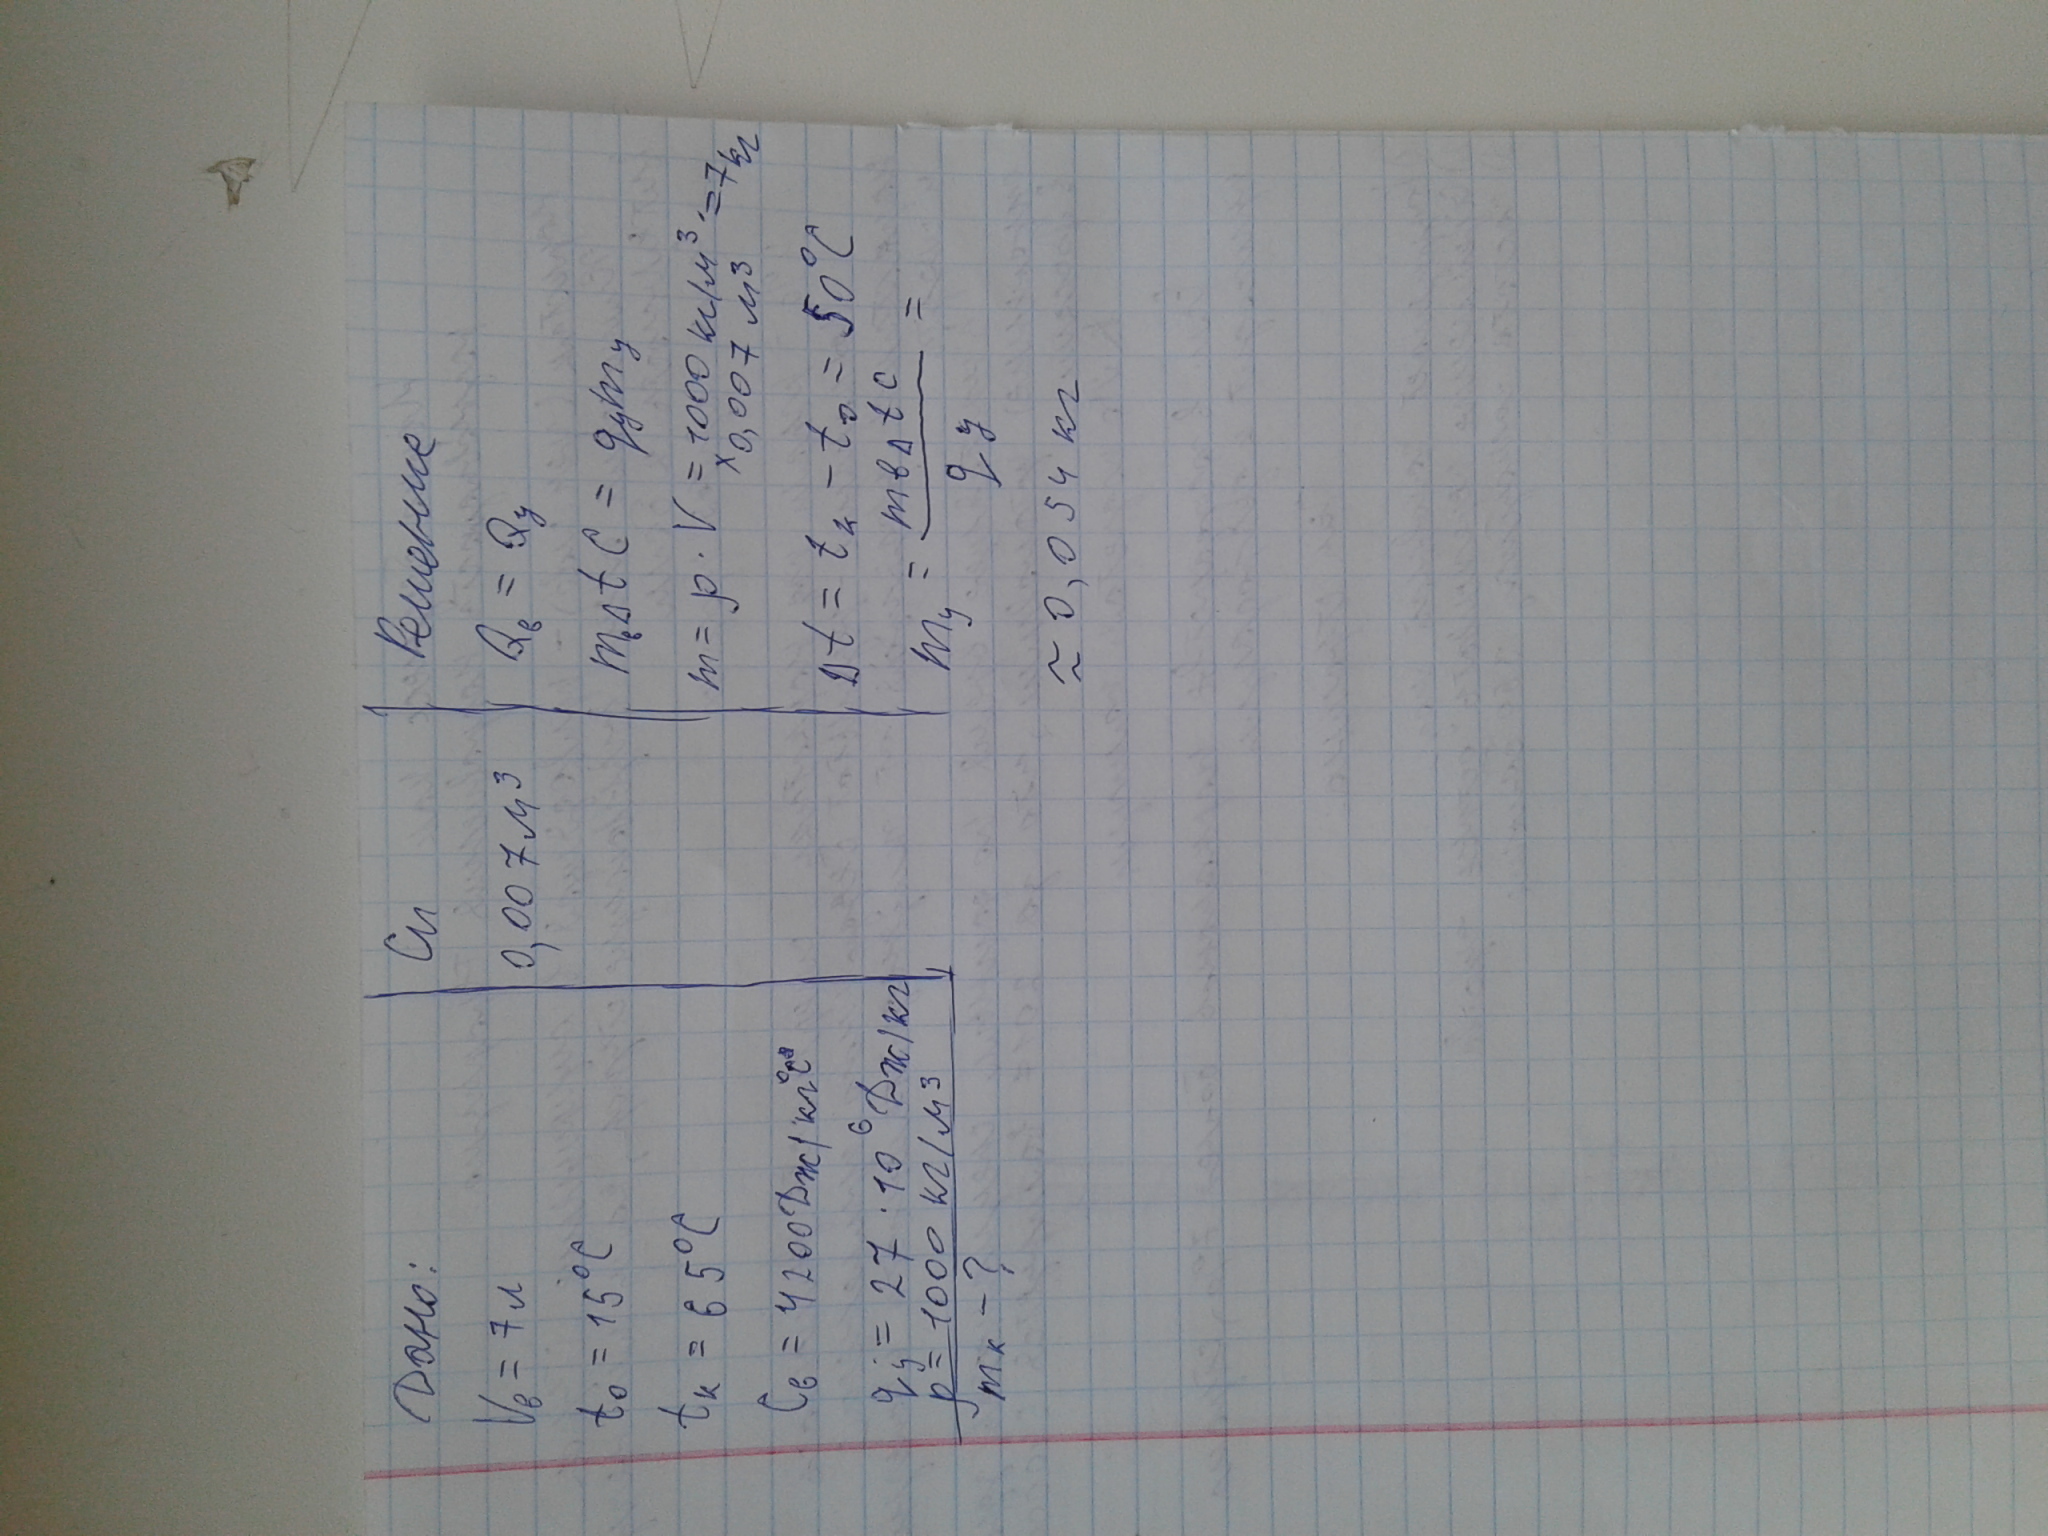 Дано:
Vв = 7 л
t₀ = 15°C
tк = 65°C
Cв = 4200 Дж/кг°C
qу = 27 · 10⁶ Дж/кг
ρ = 1000 кг/м³
mк - ?
Си
0,007 м³
Решение
Qв = Qу
mвΔt C = qуmу
m = ρ · V = 1000 кг/м³ · = 7 кг
х 0,007 м³
Δt = tк - t₀ = 50°C
mу = mвΔtс / qу =
≈ 0,054 кг